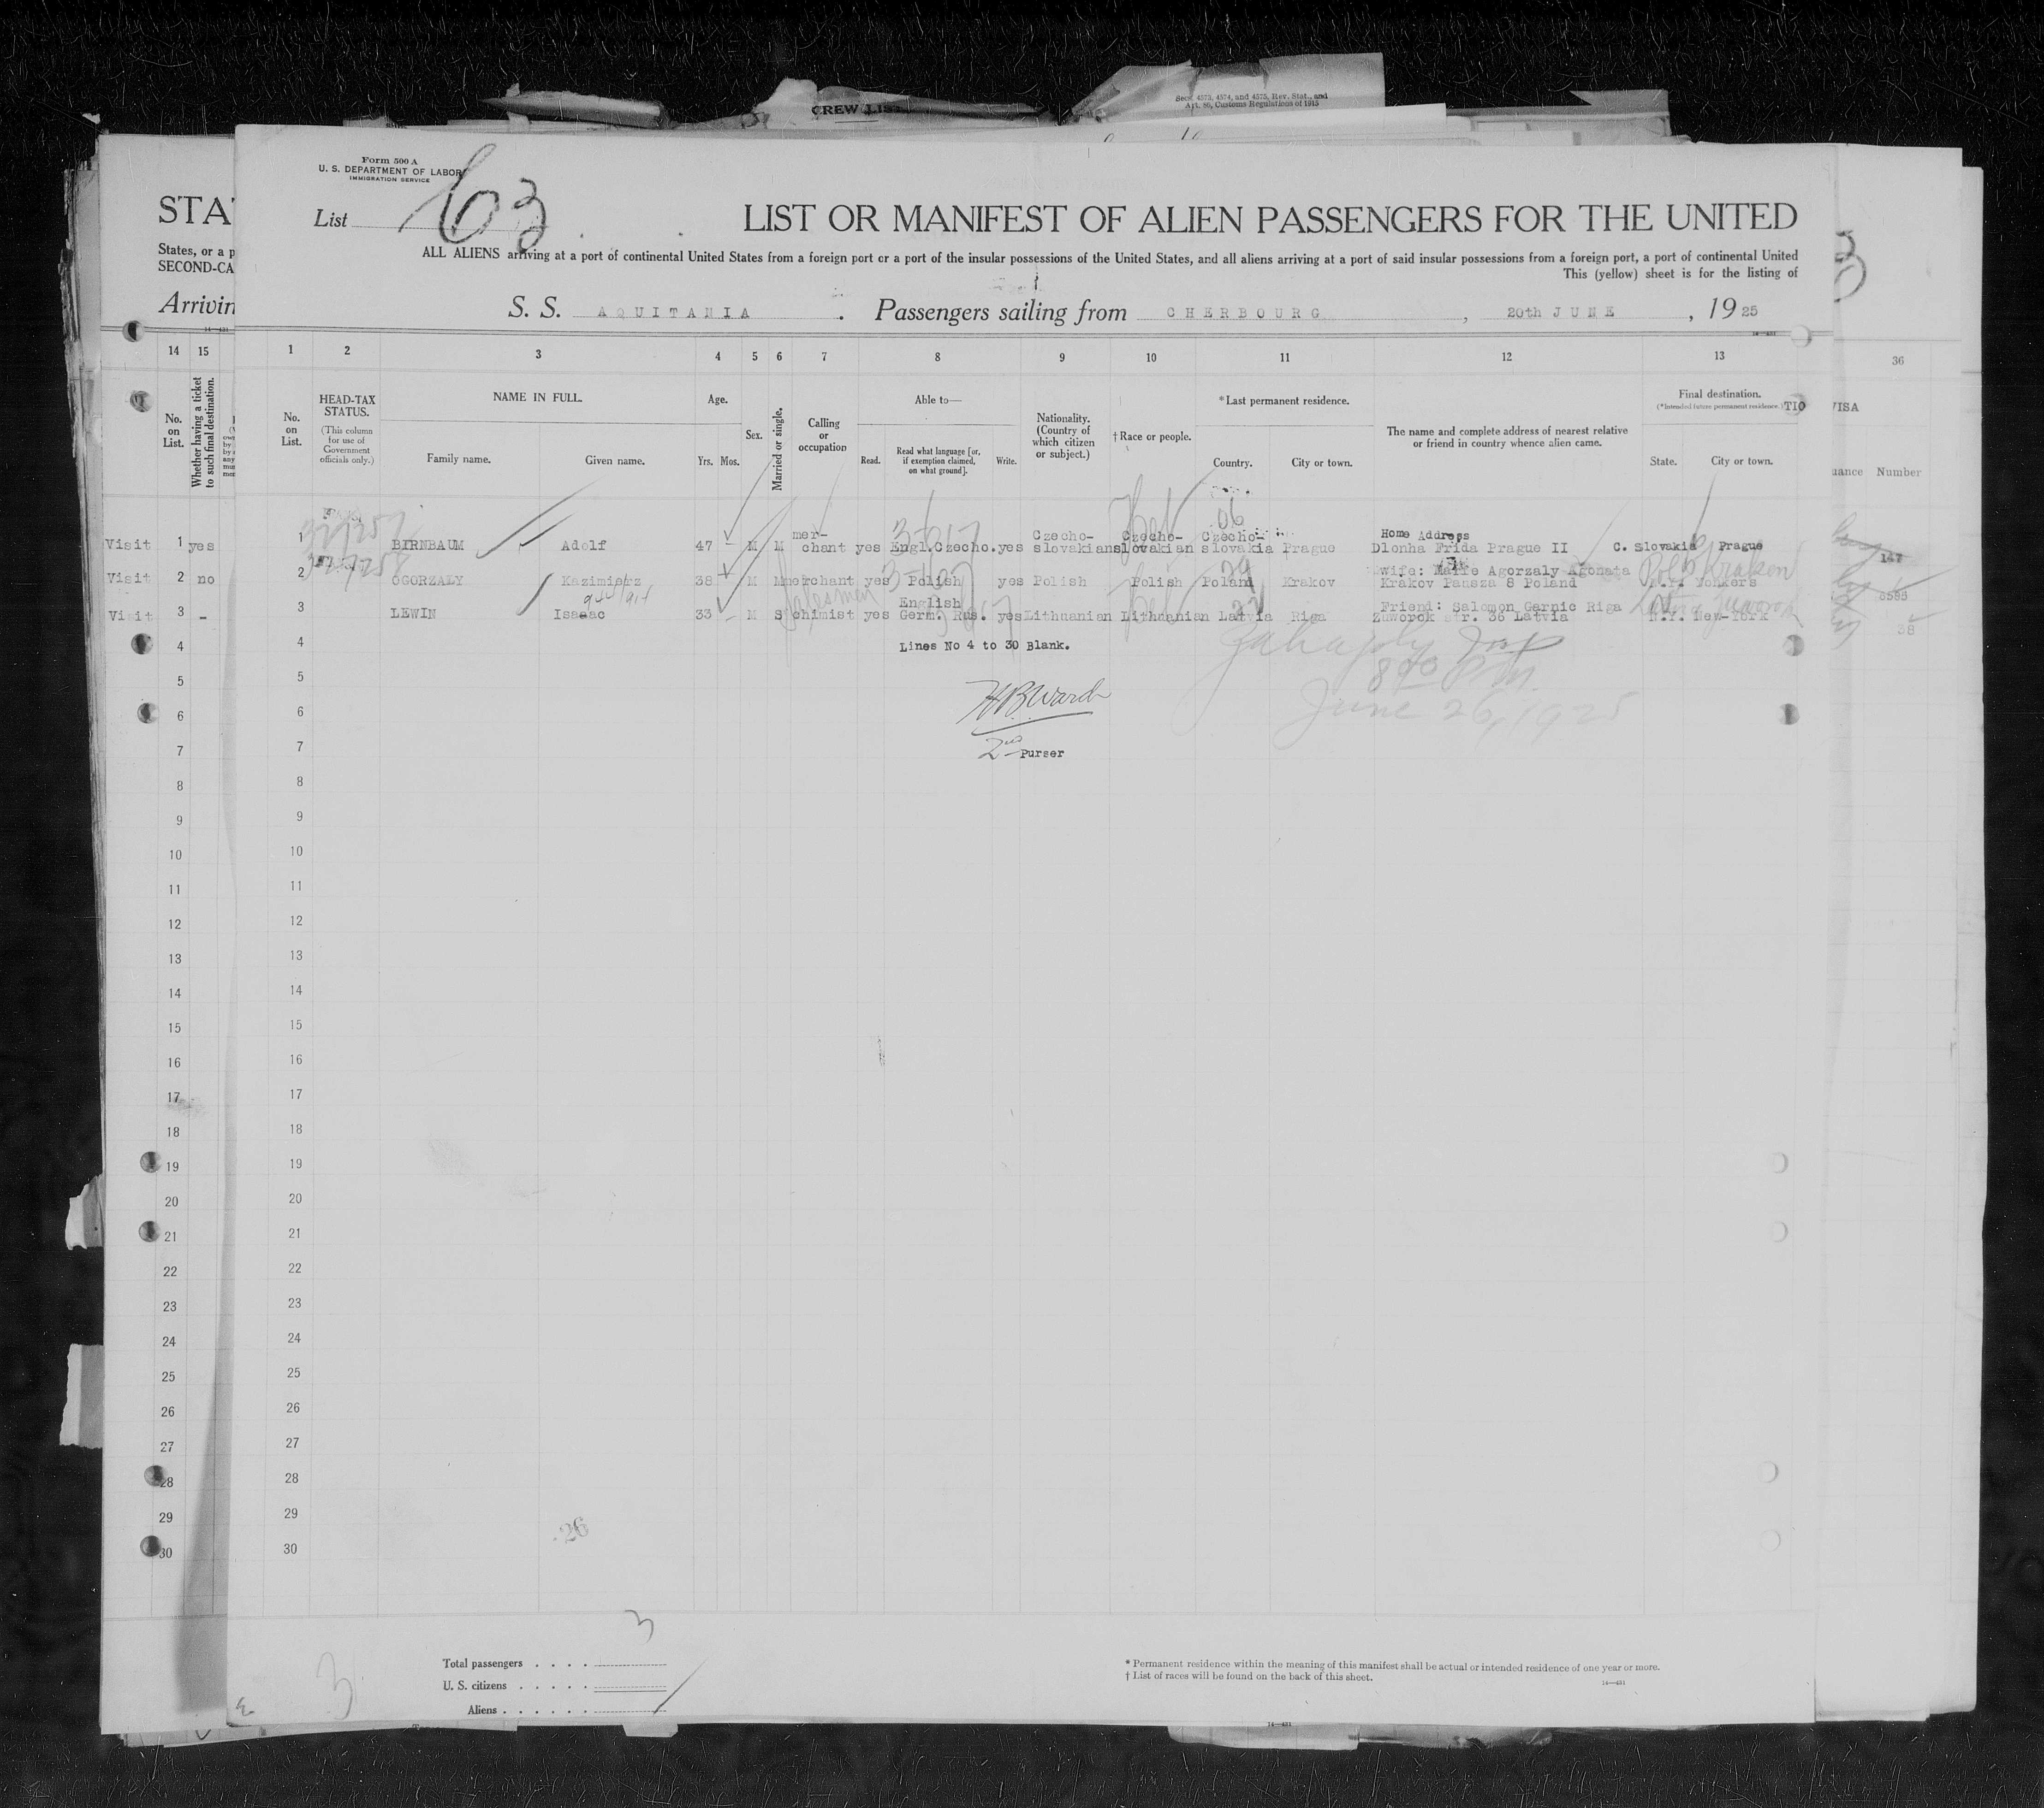 CREW LIST
Secs. 4573, 4574, and 4575, Rev. Stat., and
Art. 86, Customs Regulations of 1915
Form 500 A
U. S. DEPARTMENT OF LABOR
IMMIGRATION SERVICE
STA
List 63
LIST OR MANIFEST OF ALIEN PASSENGERS FOR THE UNITED
States, or a p
SECOND-CA
ALL ALIENS arriving at a port of continental United States from a foreign port or a port of the insular possessions of the United States, and all aliens arriving at a port of said insular possessions from a foreign port, a port of continental United
This (yellow) sheet is for the listing of
Arrivin
S. S. AQUITANIA . Passengers sailing from CHERBOURG , 20th JUNE , 1925
14 15 1 2 3 4 5 6 7 8 9 10 11 12 13 36
No. on List.
Whether having a ticket to such final destination.
No. on List.
HEAD-TAX STATUS.
(This column for use of Government officials only.)
NAME IN FULL.
Family name. Given name.
Age.
Yrs. Mos.
Sex.
Married or single.
Calling or occupation
Able to—
Read. Read what language [or, if exemption claimed, on what ground]. Write.
Nationality. (Country of which citizen or subject.)
† Race or people.
*Last permanent residence.
Country. City or town.
The name and complete address of nearest relative or friend in country whence alien came.
Final destination.
(*Intended future permanent residence.)
State. City or town.
TIO VISA
uance Number
Visit 1 yes 1 BIRNBAUM Adolf 47 – M M mer-chant yes Engl.Czecho. yes Czecho-slovakian Czecho-slovakian Czecho-slovakia Prague Home Address Dlonha Frida Prague II C. Slovakia Prague 147
Visit 2 no 2 OGORZALY Kazimierz 38 M M merchant yes Polish yes Polish Polish Poland Krakov Wife: Marie Agorzaly Agonata Krakov Pausza 8 Poland N.Y. Yonkers
Visit 3 – 3 LEWIN Isaaac 33 – M S chimist yes English Germ. Rus. yes Lithuanian Lithuanian Latvia Riga Friend: Salomon Garnic Riga Zuworok str. 36 Latvia N.Y. New-York 38
Lines No 4 to 30 Blank.
8 00 P.M.
June 26, 1925
H B Ward
2nd Purser
4 4
5 5
6 6
7 7
8 8
9 9
10 10
11 11
12 12
13 13
14 14
15 15
16 16
17 17
18 18
19 19
20 20
21 21
22 22
23 23
24 24
25 25
26 26
27 27
28 28
29 29
30 30
26
3
3
Total passengers
U. S. citizens
Aliens
* Permanent residence within the meaning of this manifest shall be actual or intended residence of one year or more.
† List of races will be found on the back of this sheet.
14—431